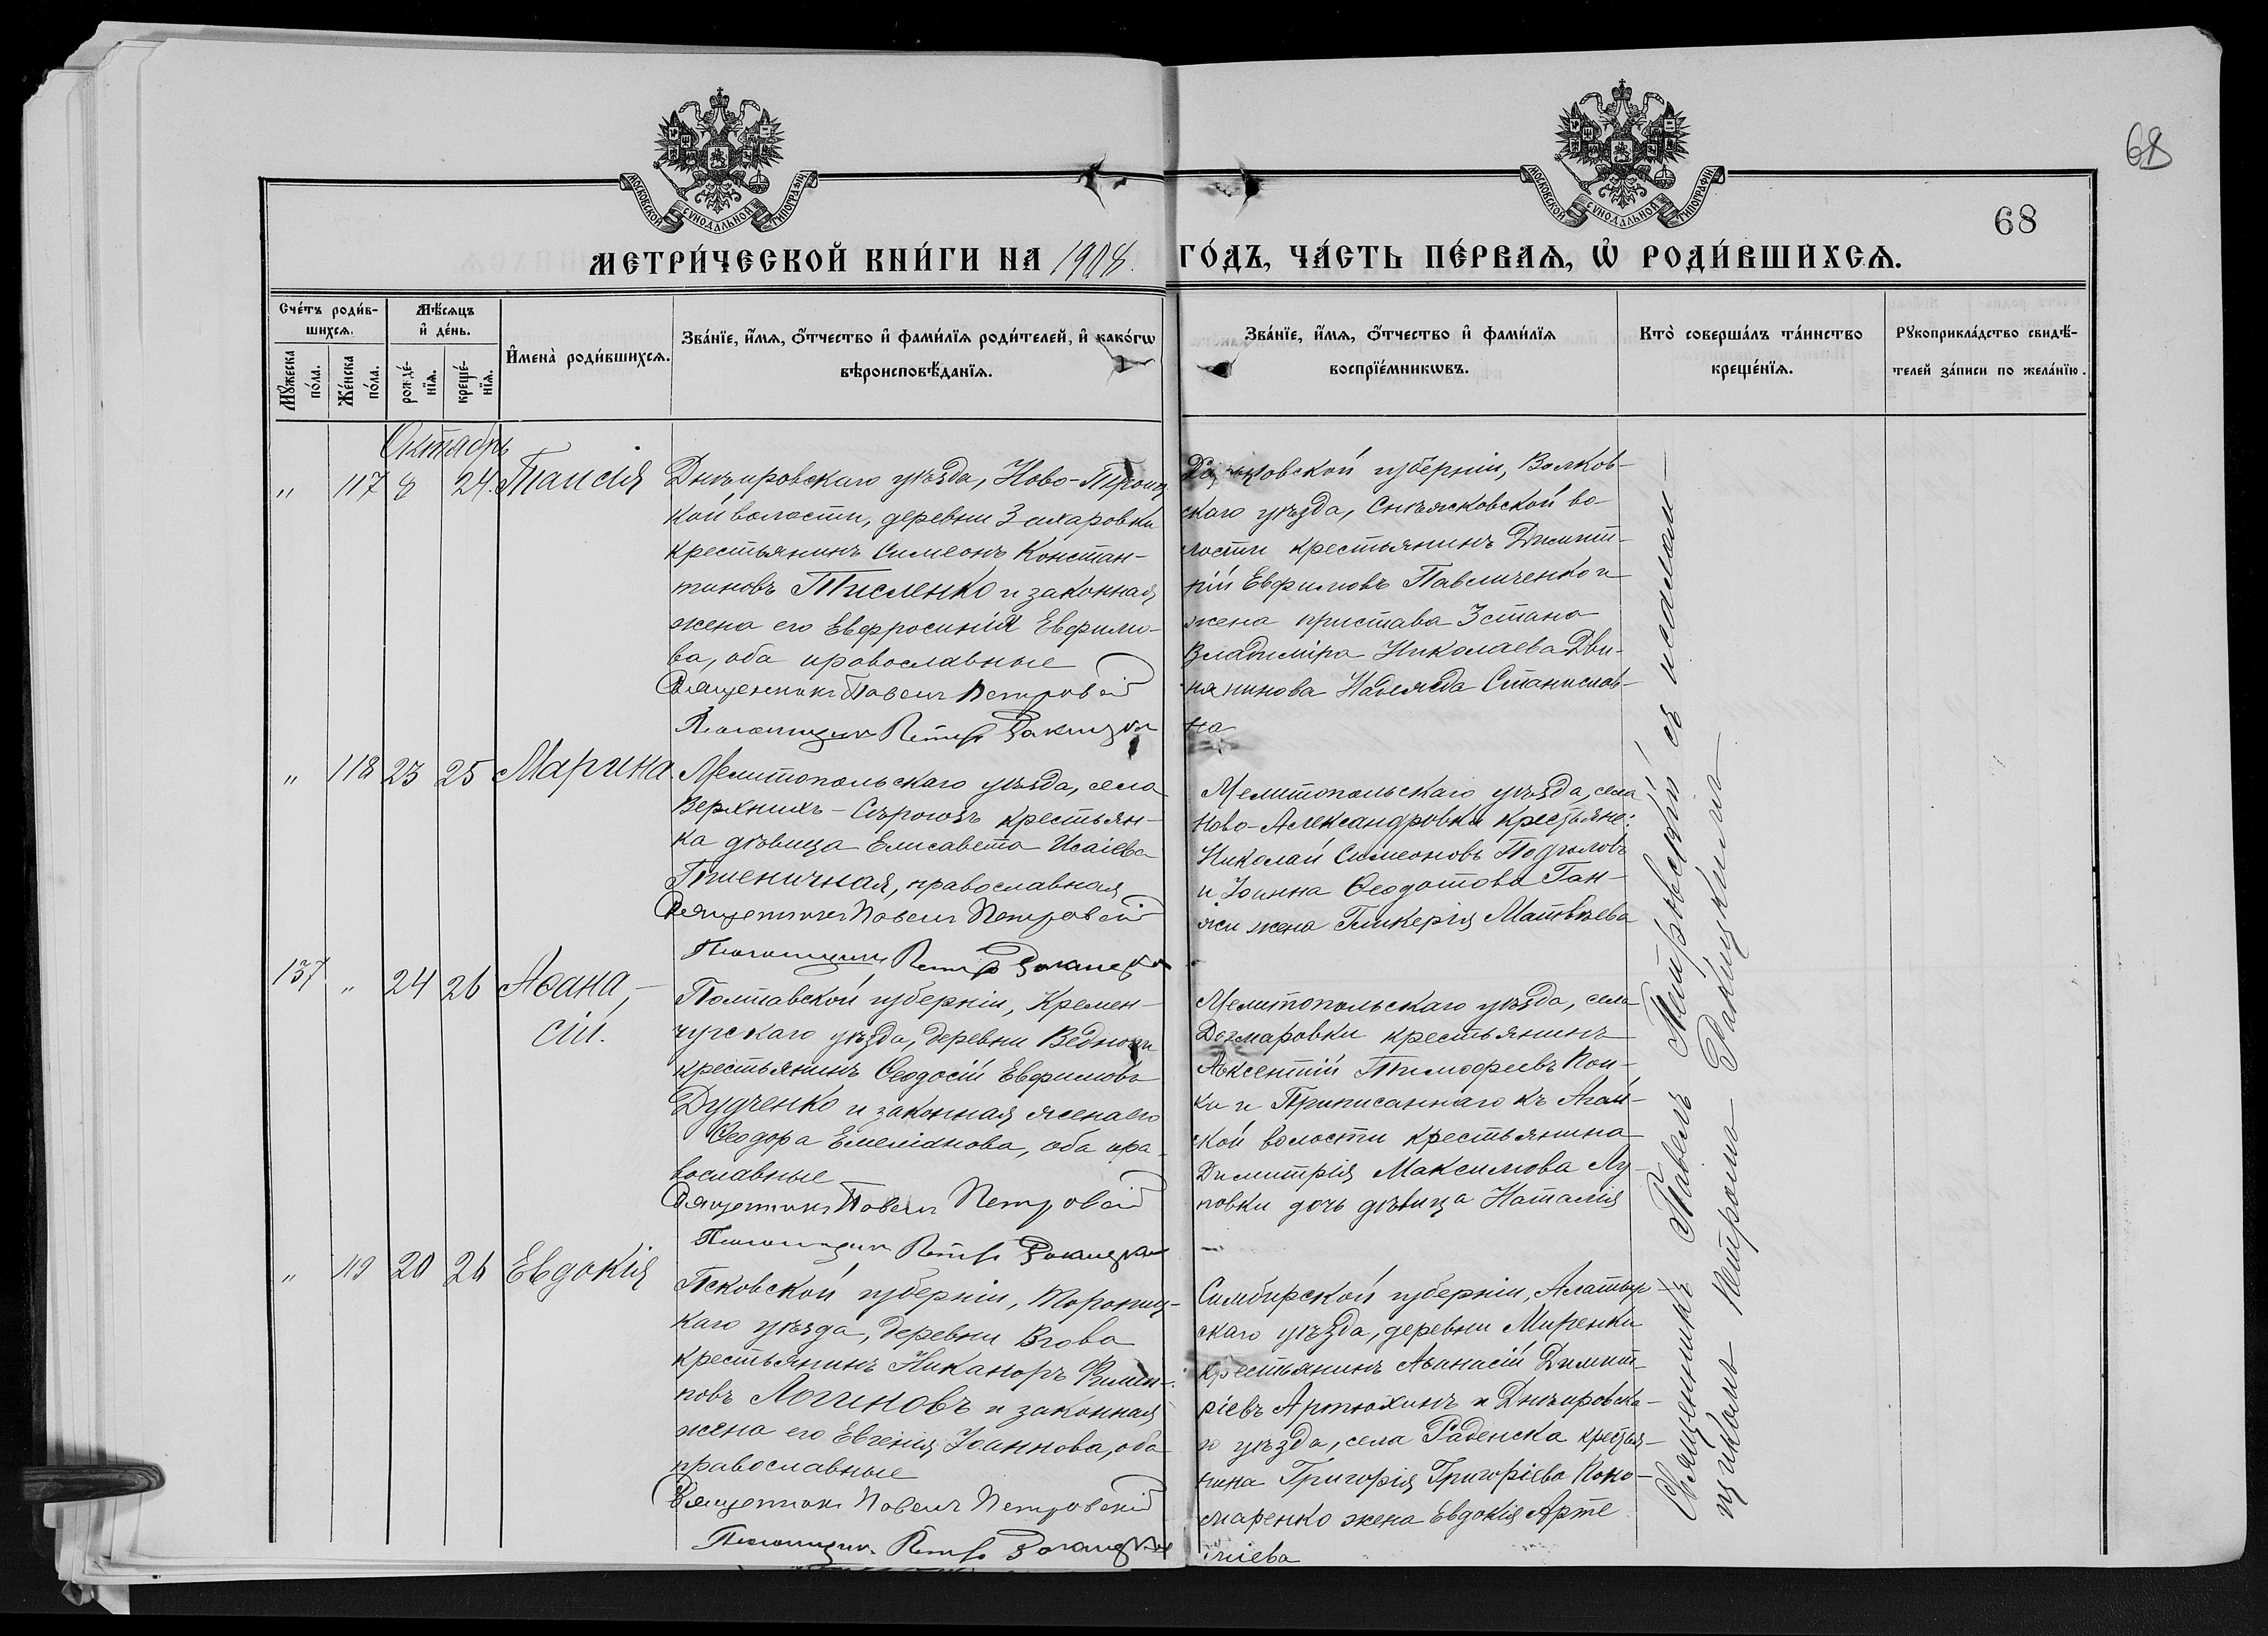 68
68
МОСКОВСКОЙ СѴНОДАЛЬНОЙ ТИПОГРАФІИ
МОСКОВСКОЙ СѴНОДАЛЬНОЙ ТИПОГРАФІИ
МЕТРИ́ЧЕСКОЙ КНИ́ГИ НА 1908. ГО́ДЪ, ЧА́СТЬ ПЕ́РВАѦ, Ѽ РОДИ́ВШИХСѦ.
Сче́тъ роди́в-
шихсѧ.
Мѣ́сѧцъ
и҆ де́нь.
Мꙋ́жеска
по́ла.
Же́нска
по́ла.
рожде́-
нїѧ.
креще́-
нїѧ.
И҆мена̀ роди́вшихсѧ.
Зва́нїе, и҆́мѧ, ѻ҆́тчество и҆ фами́лїѧ роди́телей, и҆ како́гѡ
вѣроисповѣ́данїѧ.
Зва́нїе, и҆́мѧ, ѻ҆́тчество и҆ фами́лїѧ
воспрїе́мникѡвъ.
Кто̀ соверша́лъ та́инство
креще́нїѧ.
Рꙋкоприкла́дство свидѣ́-
телей за́писи по жела́нїю.
Октябрь
" 117 8 24. Таисія
Днѣпровскаго уѣзда, Ново-Троиц
кой волости, деревни Захаровки
крестьянинъ Симеонъ Констан-
тиновъ Тисленко и законная
жена его Евфросинія Евфимо-
ва, оба православные
Священникъ Павелъ Петровскій
Псаломщикъ Петръ Ракицкій
Харьковской губерніи, Волков-
скаго уѣзда, Снѣжковской во-
лости крестьянинъ Димит-
рій Евфимовъ Павличенко и
жена пристава 3 стана
Владиміра Николаева Дви-
нянинова Надежда Станислав-
на
" 118 23 25 Марина
Мелитопольскаго уѣзда, села
Верхнихъ-Сѣрогозъ крестьян-
ка дѣвица Елисавета Исаіева
Пшеничная, православная
Священникъ Павелъ Петровскій
Псаломщикъ Петръ Ракицкій
Мелитопольскаго уѣзда, села
Ново-Александровки крестьяне:
Николай Симеоновъ Подгыловъ
и Іоанна Ѳеодотова Ган-
жи жена Гликерія Матвѣева
137 " 24 26 Аѳана-
сій.
Полтавской губерніи, Кремен-
чугскаго уѣзда, деревни
крестьянинъ Ѳеодосій Евфимовъ
Дудченко и законная жена его
Ѳеодора Емеліанова, оба пра-
вославные
Священникъ Павелъ Петровскій
Псаломщикъ Петръ Ракицкій
Мелитопольскаго уѣзда, села
Догмаровки крестьянинъ
Авксентій Тимофеевъ Кой-
ка и Приписаннаго къ Агай-
ской волости крестьянина
Димитрія Максимова Лу-
повки дочь дѣвица Наталія
" 119 20 26 Евдокія
Псковской губерніи, Торопец-
каго уѣзда, деревни Вгова
крестьянинъ Никаноръ Филип-
повъ Логиновъ и законная
жена его Евгенія Іоаннова, оба
православные
Священникъ Павелъ Петровскій
Псаломщикъ Петръ Ракицкій
Симбирской губерніи, Алатыр-
скаго уѣзда, деревни Миренки
крестьянинъ Аѳанасій Димит-
ріевъ Артюхинъ и Днѣпровска-
го уѣзда, села Раденска крестья-
нина Григорія Григоріева Коно-
маренко жена Евдокія Арте
міева
Священникъ Павелъ Петровскій съ псалом-
щикомъ Петромъ Ракицкимъ